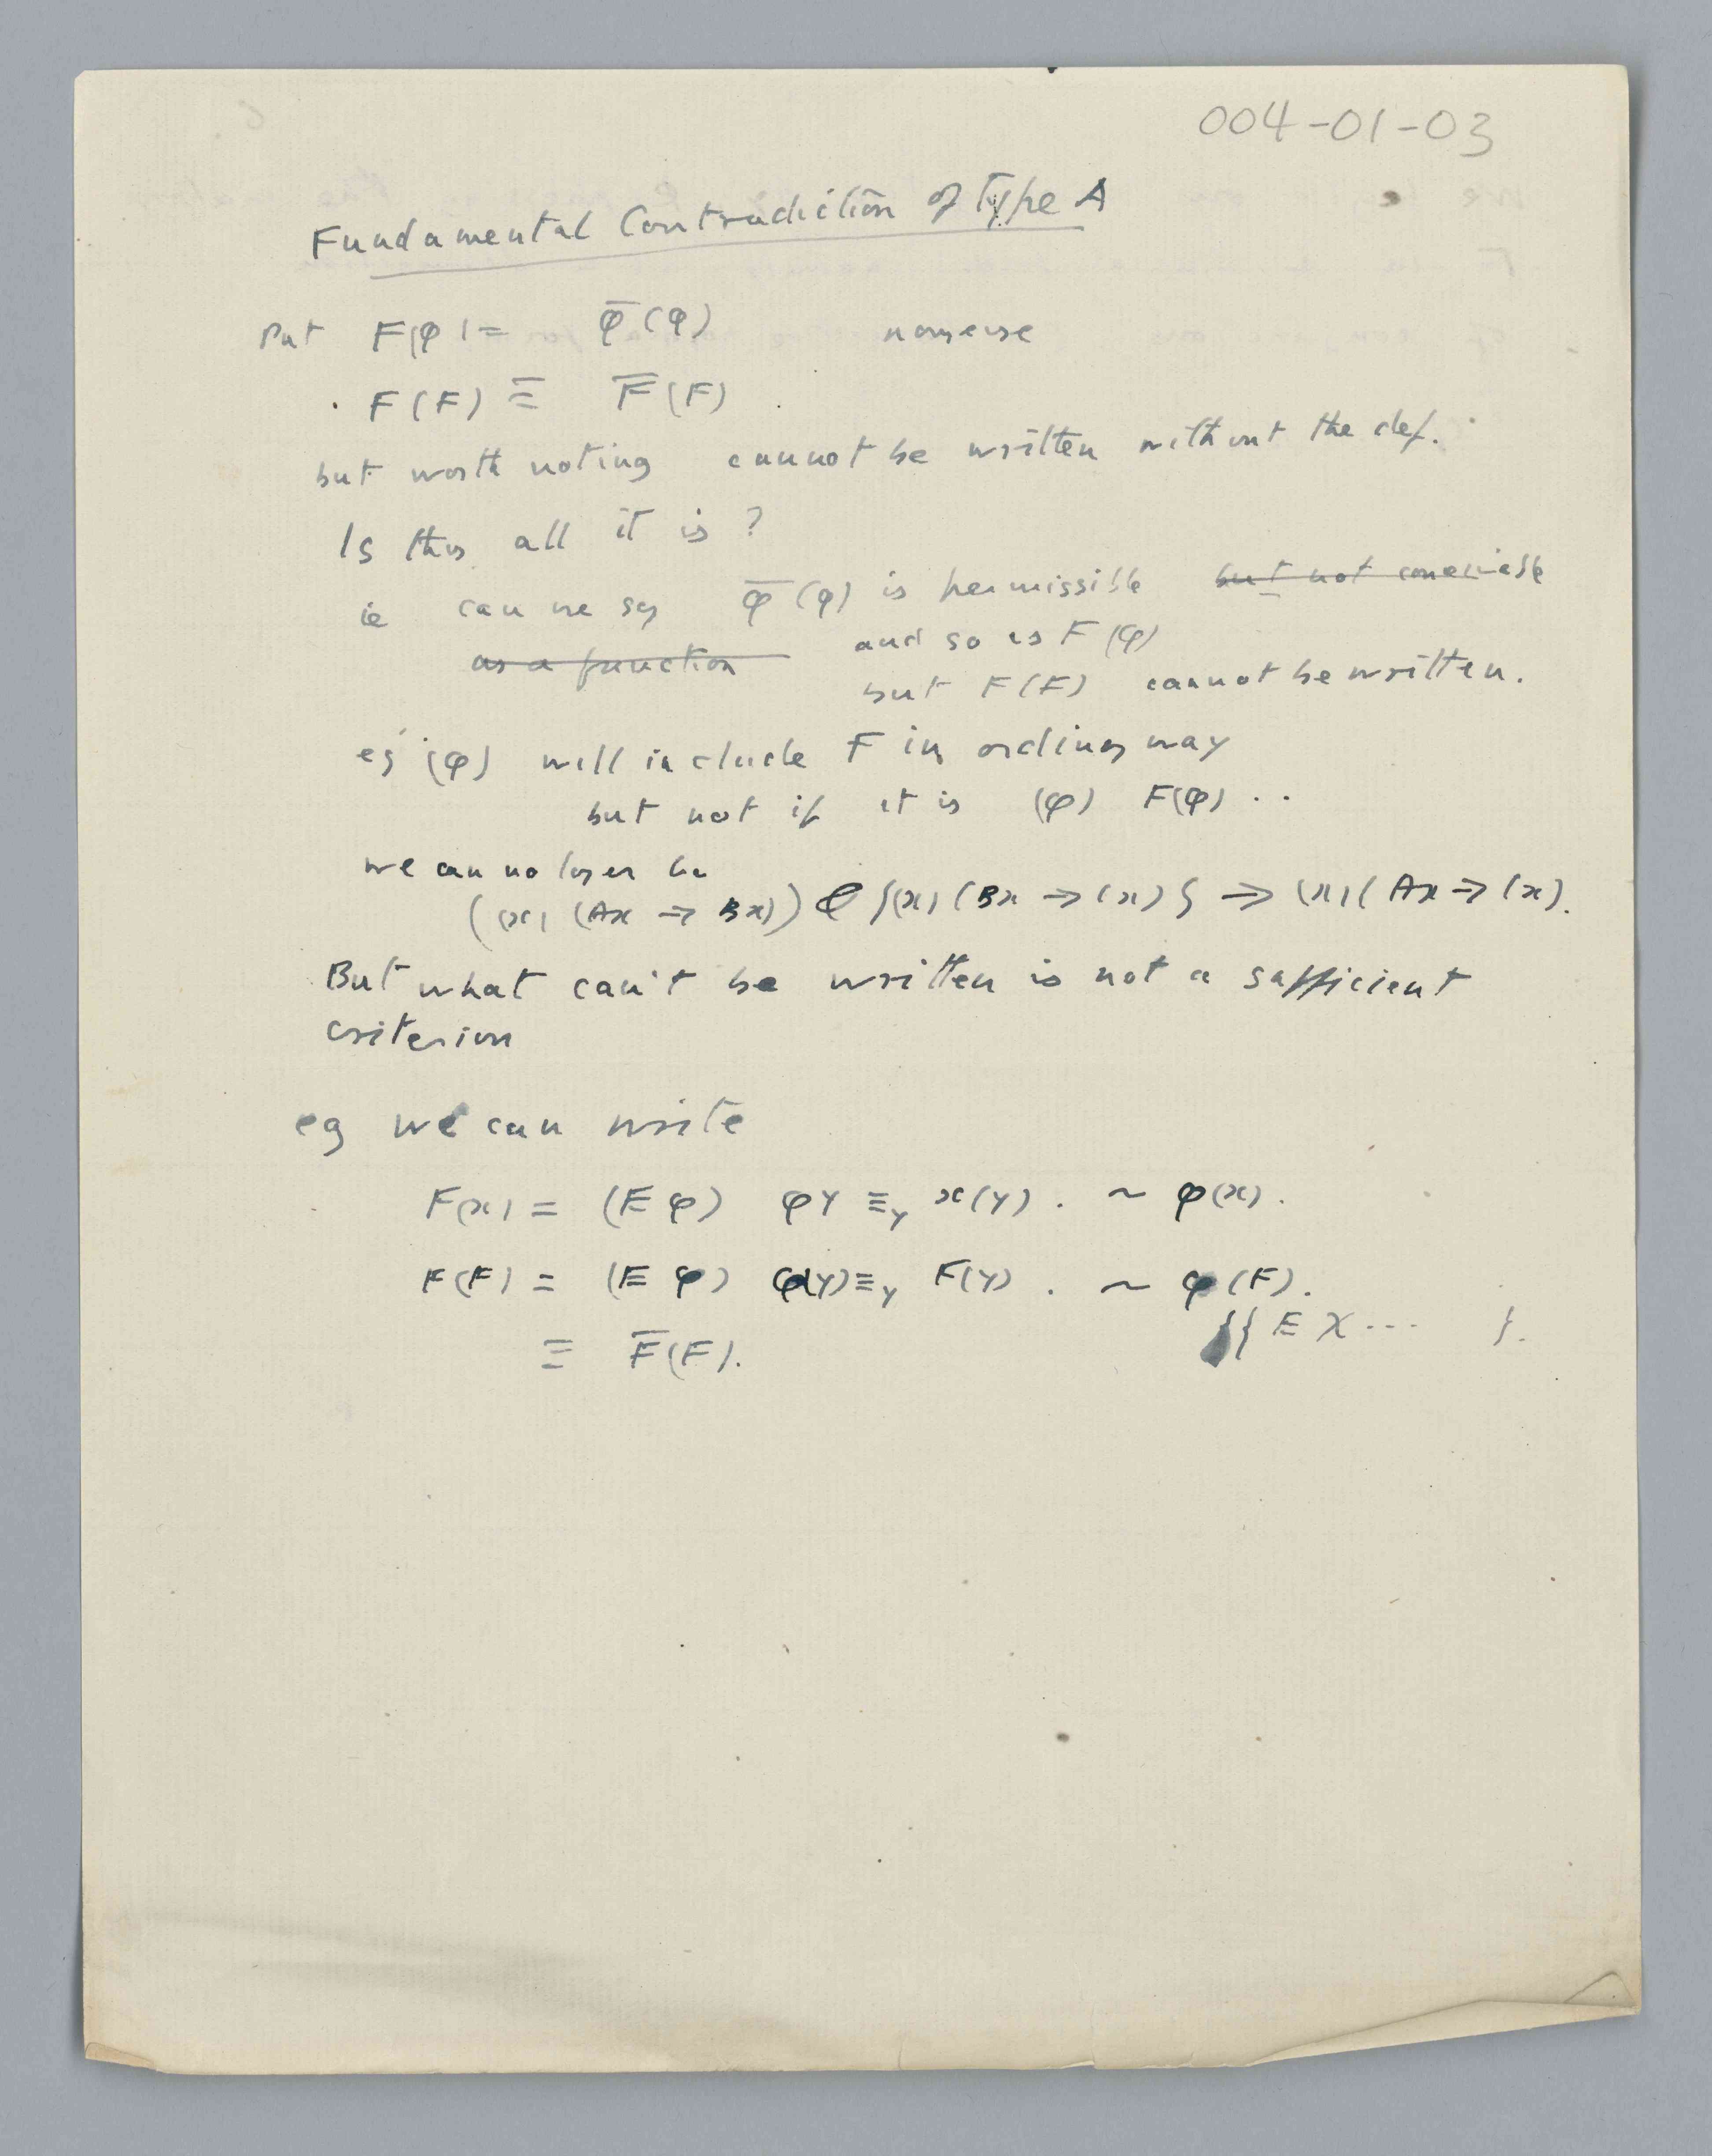 004-01-03
Fundamental Contradiction of Type A
Put F(φ) = φ̅(φ) nonsense
. F(F) ≡ F̅(F) .
but worth noting cannot be written without the def.
Is this all it is ?
ie can we say φ̅(φ) is permissible but not
as a function and so is F(φ)
but F(F) cannot be written.
eg (φ) will include F in ordinary way
but not if it is (φ) F(φ) ..
we can no longer
((x) (Ax → Bx)) & {(x) (Bx → Cx)} → (x) (Ax → Cx).
But what can't be written is not a sufficient
criterion
eg we can write
F(x) = (E φ) φy ≡y x(y) . ~ φ(x) .
F(F) = (E φ) φ(y) ≡y F(y) . ~ φ(F).
≡ F̅(F).
{{ E χ ... }.